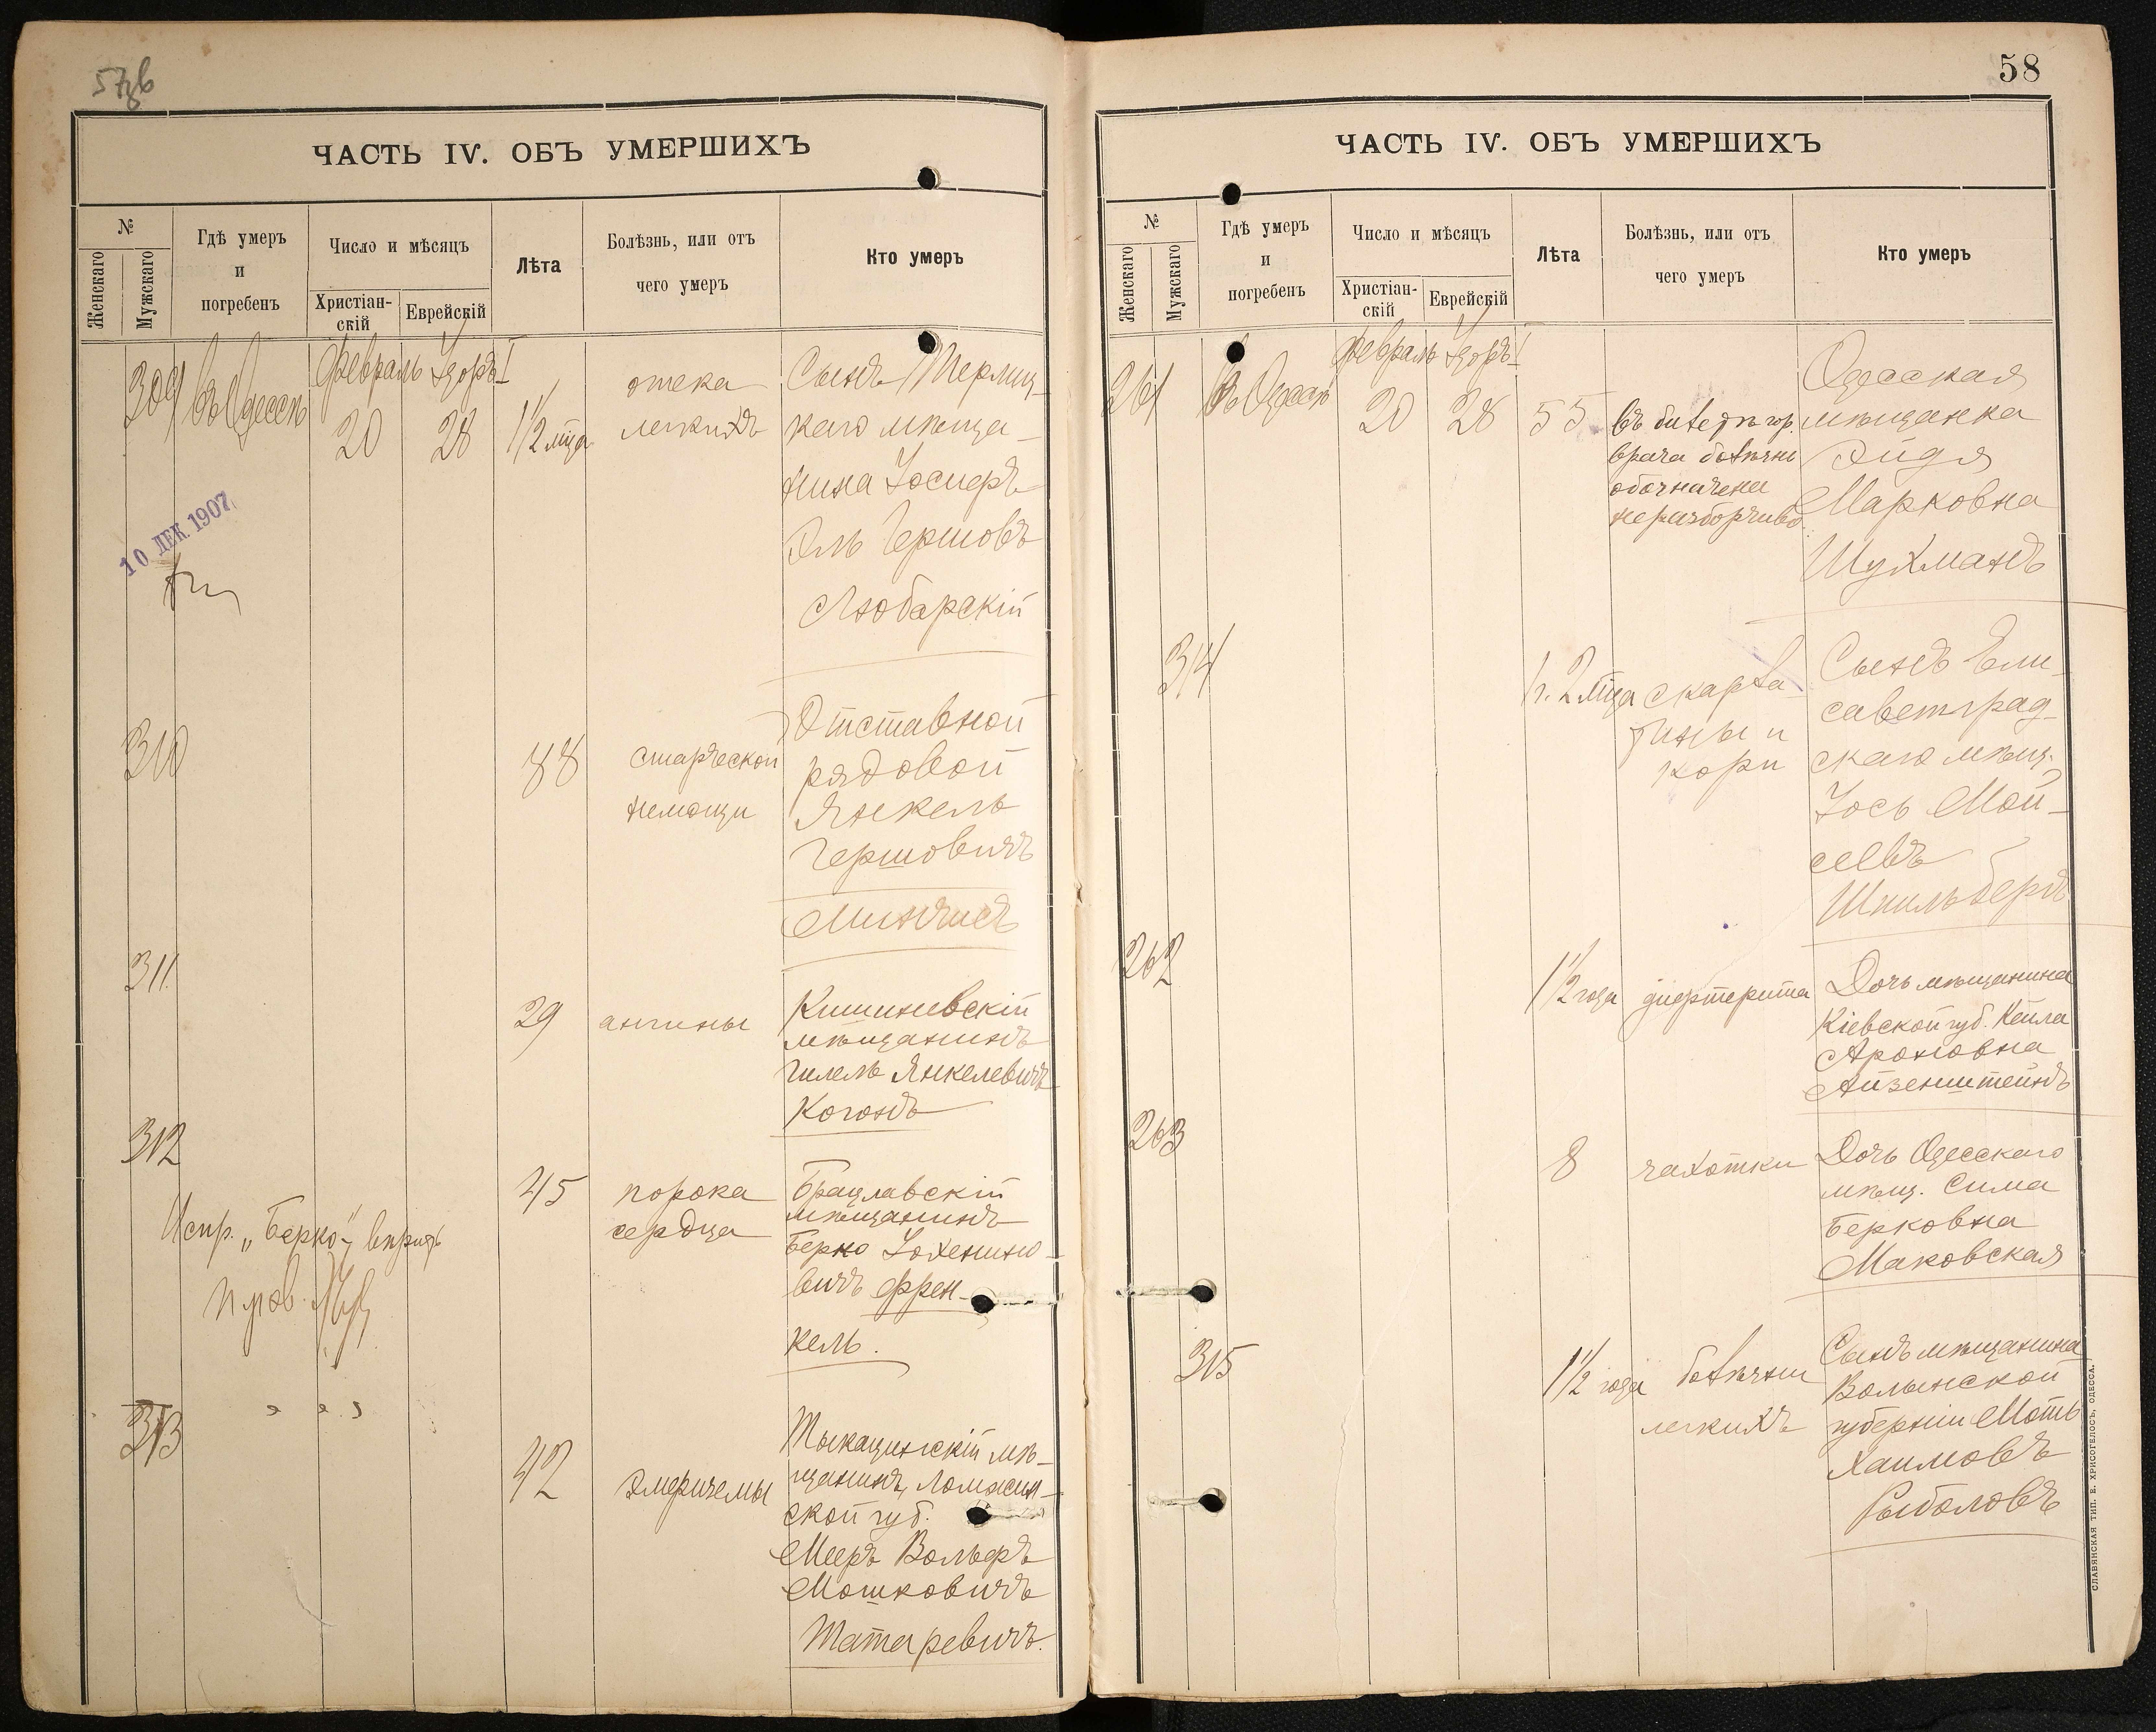 57зв
ЧАСТЬ IV. ОБЪ УМЕРШИХЪ
№
Женскаго
Мужскаго
Гдѣ умеръ
и
погребенъ
Число и мѣсяцъ
Христіан-
скій
Еврейскій
Лѣта
Болѣзнь, или отъ
чего умеръ
Кто умеръ
309
въ Одессѣ
Февраль
20
Адаръ I
28
1½ мца
отека
легкихъ
Сынъ
каго мѣща-
нина Іосифъ
Эль Гершовъ
Любарскій
10 ДЕК. 1907
310
88
старческой
немощи
Отставной
рядовой
Янкель
Гершовичъ
311
29
ангины
Кишиневскій
мѣщанинъ
Гилель Янкелевичъ
Коганъ
312
45
порока
сердца
Брацлавскій
мѣщанинъ
Берко
вичъ Френ-
кель.
Испр. „Берко“
313
42
Тыкацинскій мѣ-
щанинъ, Ломжин-
ской губ.
Мееръ Вольфъ
Мошковичъ
Татаревичъ.
58
ЧАСТЬ IV. ОБЪ УМЕРШИХЪ
№
Женскаго
Мужскаго
Гдѣ умеръ
и
погребенъ
Число и мѣсяцъ
Христіан-
скій
Еврейскій
Лѣта
Болѣзнь, или отъ
чего умеръ
Кто умеръ
261
въ Одессѣ
Февраль
20
Адаръ I
28
55
въ билетѣ гор.
врача болѣзнь
обозначена
неразборчиво
Одесская
мѣщанка
Эйдя
Марковна
Шухманъ
314
1 г. 2 мца
скарла-
тины и
кори
Сынъ Ели-
саветград-
скаго мѣщ.
Іось Мои-
сеевъ
Шпильбергъ
262
1½ года
дифтерита
Дочь мѣщанина
Кіевской губ. Кейла
Ароновна
Айзенштейнъ
263
8
чахотки
Дочь Одесскаго
мѣщ. Сима
Берковна
Маковская
315
1½ года
болѣзни
легкихъ
Сынъ мѣщанина
Волынской
губерніи Моть
Хаимовъ
Рыболовъ
СЛАВЯНСКАЯ ТИП. Е. ХРИСОГЕЛОСЪ, ОДЕССА.